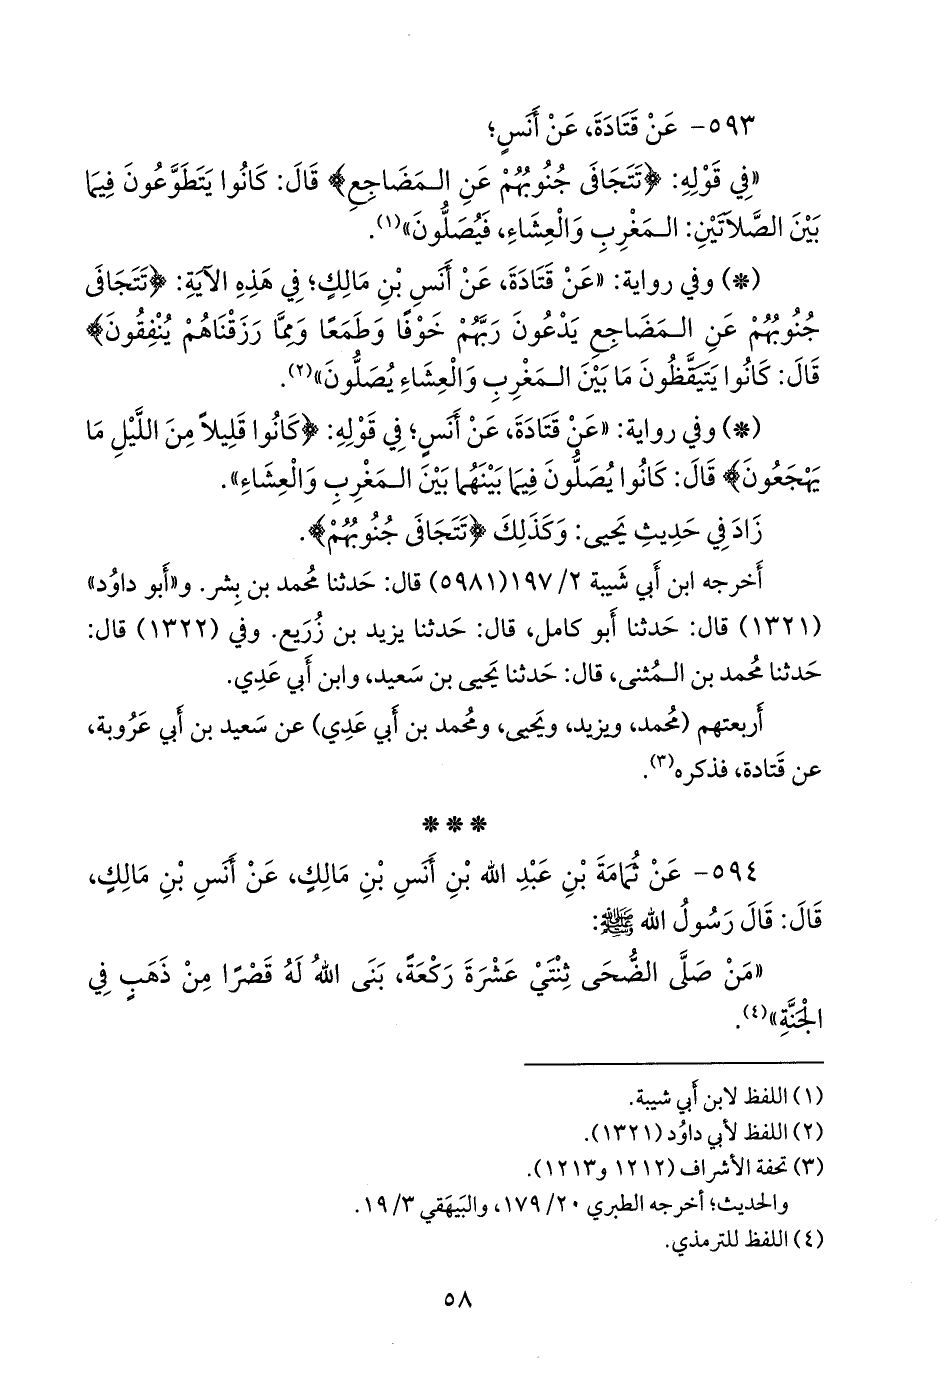 ٥٩٣- عَنْ قَتَادَةَ، عَنْ أَنَسٍ؛
«فِي قَوْلِهِ: ﴿تَتَجَافَى جُنُوبُهُمْ عَنِ الْمَضَاجِعِ﴾ قَالَ: كَانُوا يَتَطَوَّعُونَ فِيمَا
بَيْنَ الصَّلاَتَيْنِ: الْمَغْرِبِ وَالْعِشَاءِ، فَيُصَلُّونَ»(١).
(*) وفي رواية: «عَنْ قَتَادَةَ، عَنْ أَنَسِ بْنِ مَالِكٍ؛ فِي هَذِهِ الآيَةِ: ﴿تَتَجَافَى
جُنُوبُهُمْ عَنِ الْمَضَاجِعِ يَدْعُونَ رَبَّهُمْ خَوْفًا وَطَمَعًا وَمِمَّا رَزَقْنَاهُمْ يُنْفِقُونَ﴾
قَالَ: كَانُوا يَتَيَقَّظُونَ مَا بَيْنَ الْمَغْرِبِ وَالْعِشَاءِ يُصَلُّونَ»(٢).
(*) وفي رواية: «عَنْ قَتَادَةَ، عَنْ أَنَسٍ؛ فِي قَوْلِهِ: ﴿كَانُوا قَلِيلاً مِنَ اللَّيْلِ مَا
يَهْجَعُونَ﴾ قَالَ: كَانُوا يُصَلُّونَ فِيمَا بَيْنَهُمَا بَيْنَ الْمَغْرِبِ وَالْعِشَاءِ».
زَادَ فِي حَدِيثِ يَحيى: وَكَذَلِكَ ﴿تَتَجَافَى جُنُوبُهُمْ﴾.
أَخرجه ابن أَبي شَيبة ٢/ ١٩٧(٥٩٨١) قال: حَدثنا مُحمد بن بِشر. و«أَبو داوُد»
(١٣٢١) قال: حَدثنا أَبو كامل، قال: حَدثنا يزيد بن زُرَيع. وفي (١٣٢٢) قال:
حَدثنا مُحمد بن الـمُثنى، قال: حَدثنا يَحيى بن سَعيد، وابن أَبي عَدِي.
أَربعتهم (مُحمد، ويزيد، ويَحيى، ومُحمد بن أَبي عَدِي) عن سَعيد بن أَبي عَرُوبة،
عن قَتادة، فذكره(٣).
* * *
٥٩٤- عَنْ ثُمَامَةَ بْنِ عَبْدِ الله بْنِ أَنَسِ بْنِ مَالِكٍ، عَنْ أَنَسِ بْنِ مَالِكٍ،
قَالَ: قَالَ رَسُولُ الله ﷺ:
«مَنْ صَلَّى الضُّحَى ثِنْتَيْ عَشْرَةَ رَكْعَةً، بَنَى اللهُ لَهُ قَصْرًا مِنْ ذَهَبٍ فِي
الْجَنَّةِ»(٤).
(١) اللفظ لابن أَبي شيبة.
(٢) اللفظ لأَبي داوُد (١٣٢١).
(٣) تحفة الأشراف (١٢١٢ و١٢١٣).
والحديث؛ أخرجه الطبري ٢٠/ ١٧٩، والبَيهَقي ٣/ ١٩.
(٤) اللفظ للترمذي.
٥٨